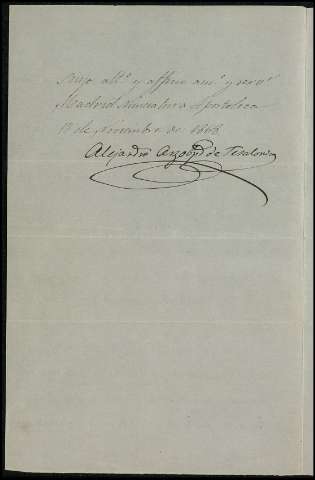 Suyo att.º y affmo am.º y serv.r
Madrid Nunciatura Apostolica
de Noviembre de 1868
Alejandro Arzobpo de Tesalonica